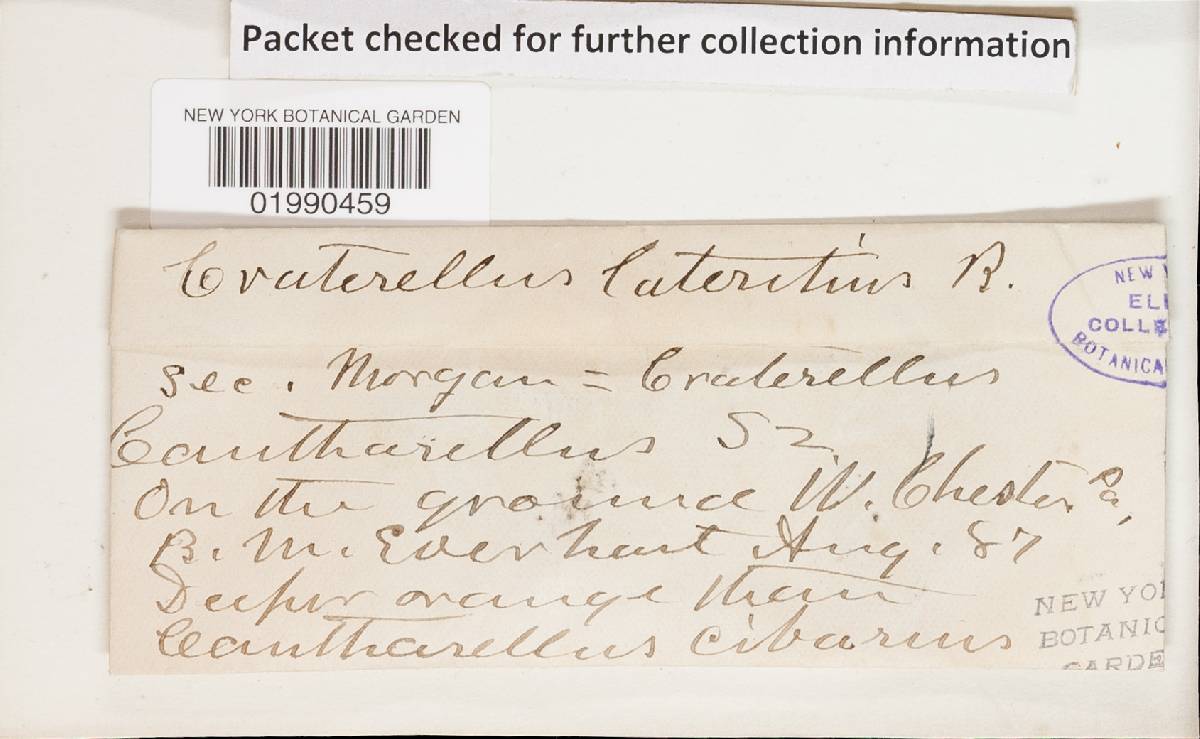 Packet checked for further collection information
NEW YORK BOTANICAL GARDEN
01990459
Craterellus lateritius B.
sec. Morgan = Craterellus
Cantharellus Sz
On the ground W. Chester Pa,
B. M. Everhart Aug. 87
Deeper orange than
Cantharellus cibarius
NEW Y
EL
COLLE
BOTANICA
NEW YO
BOTANIC
GARDE